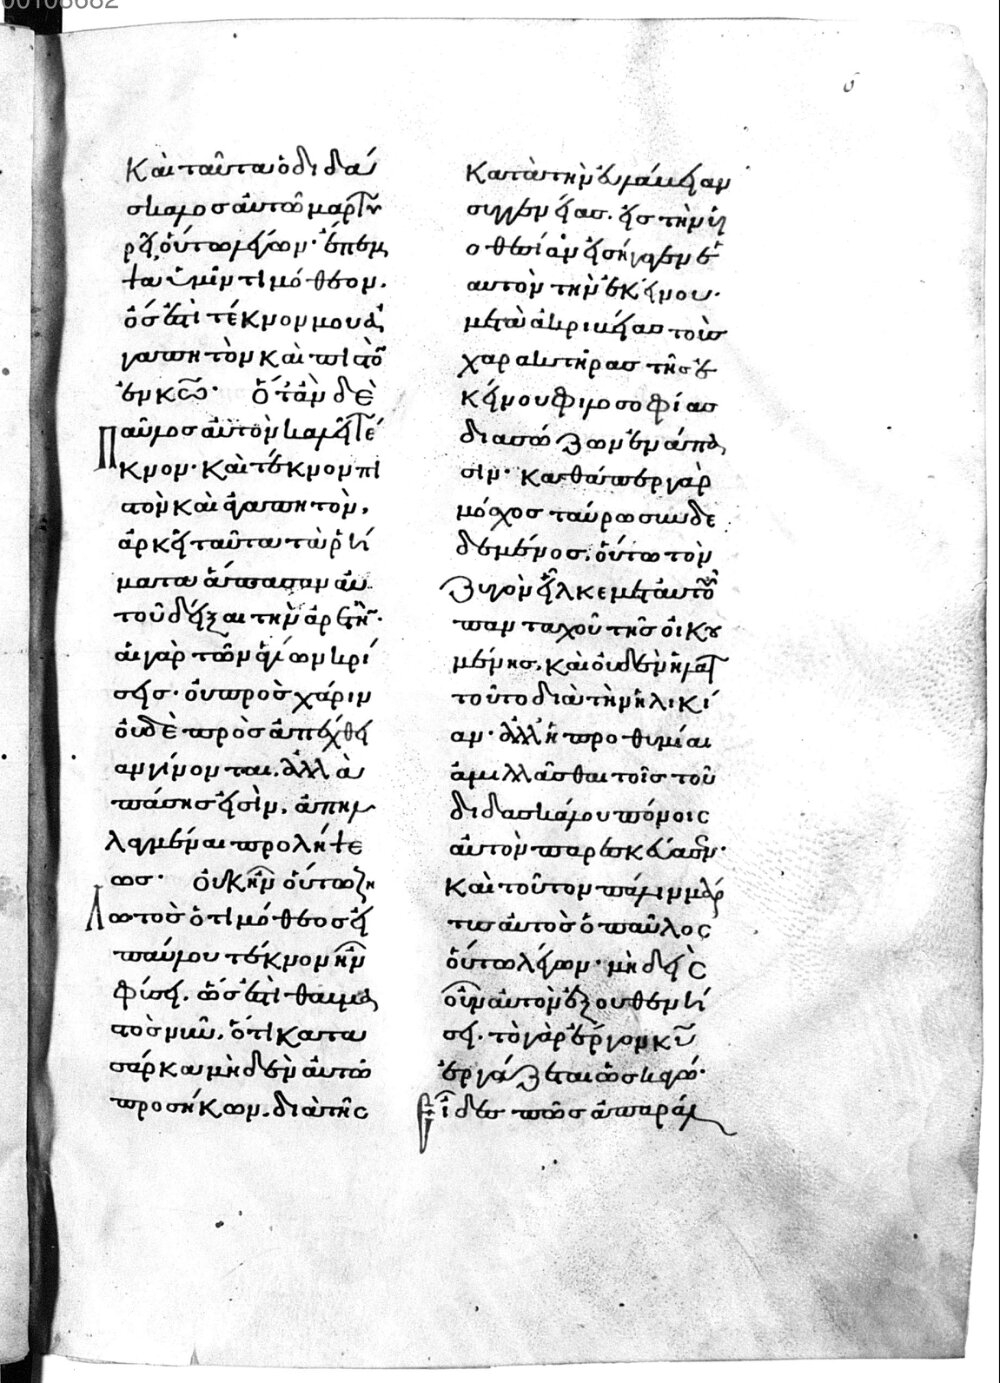 00108682
Καὶ ταῦτα ὁ διδά
σκαλος αὐτῶ μαρτυ
ρεῖ, οὕτω λέγων· ἔπεμ
ψα ὑμῖν τιμόθεον.
ὅς ἐστὶ τέκνον μου ἀ
γαπητὸν καὶ πιστὸν
ἐν κω· Ὅταν δὲ
παῦλος αὐτὸν καλεῖ τέ
κνον. καὶ τέκνον πι
στὸν καὶ ἀγαπητὸν,
ἀρκεῖ ταῦτα τὰ ῥή
ματα ἅπασαν αὐ
τοῦ δεῖξαι τὴν ἀρετήν·
αἱ γὰρ τῶν ἁγίων κρί
σεις. οὐ πρὸς χάριν
οὐδὲ πρὸς ἀπέχθει
αν γίνονται. ἀλλὰ
πάσης εἰσὶν, ἀπηλ
λαγμέναι προλήψε
ως· Οὐκ ἦν οὕτω ζη
λωτὸς ὁ τιμόθεος εἰ
παύλου τέκνον ἦν
φύσει. ὡς ἐστὶ θαυμα
στὸς νῦν, ὅτι κατὰ
σάρκα μηδὲν αὐτῶ
προσήκων. διὰ τῆς
κατὰ τὴν εὐσέβειαν
συγγενείας. εἰς τὴν υἱ
οθεσίαν εἰσήγαγεν ἑ
αυτὸν τὴν ἐκείνου·
μετὰ ἀκριβείας τοὺς
χαρακτῆρας τῆς ἐ
κείνου φιλοσοφίας
διασώζων ἐν ἅπα
σιν· καθάπερ γὰρ
μόσχος ταύρω συνδε
δεμένος, οὕτω τὸν
ζυγὸν εἷλκε μετ αὐτοῦ
πανταχοῦ τῆς οἰκου
μένης, καὶ οὐδὲν ἠλατ
τοῦτο διὰ τὴν ἡλικί
αν· ἀλλ ἡ προθυμία
ἁμιλλᾶσθαι τοῖς τοῦ
διδασκάλου πόνοις
αὐτὸν παρεσκεύασεν·
καὶ τοῦτον πάλιν μάρ
τυς αὐτὸς ὁ παῦλος
οὕτω λέγων· μὴ δεὶς
οὖν αὐτὸν ἐξουθενή
ση. τὸ γὰρ ἔργον κυ
ἐργάζεται ὡς κἀγώ·
Εἶδες πῶς ἀπαράλ